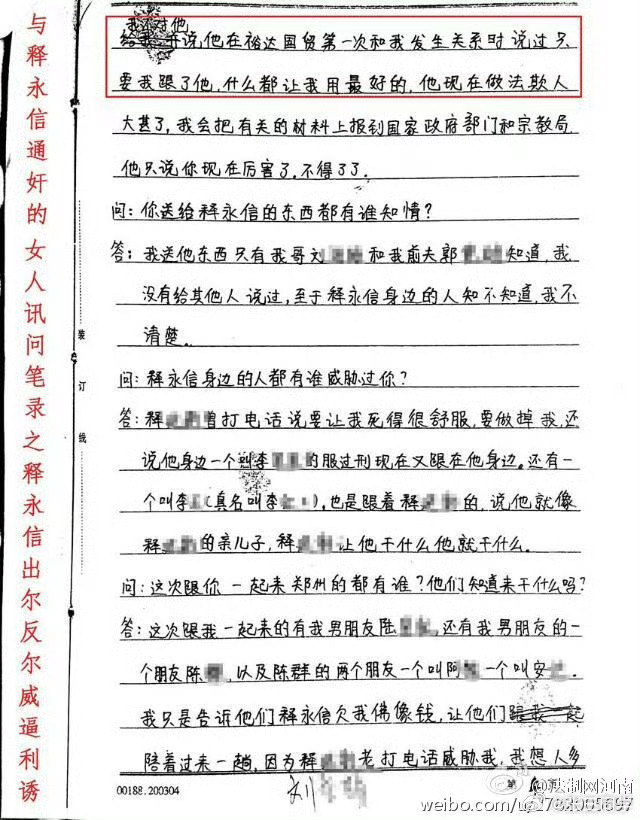 与释永信通奸的女人讯问笔录之释永信出尔反尔威逼利诱
装订线
我还对他
说，他在裕达国贸第一次和我发生关系时说过只
要我跟了他，什么都让我用最好的，他现在做法欺人
太甚了，我会把有关的材料上报到国家政府部门和宗教局
他只说你现在厉害了，不得了了.
问：你送给释永信的东西都有谁知情？
答：我送他东西只有我哥刘 和我前夫郭 知道，我
没有给其他人说过，至于释永信身边的人知不知道，我不
清楚。
问：释永信身边的人都有谁威胁过你？
答：释 曾打电话说要让我死得很舒服，要做掉我，还
说他身边一个 李 的服过刑现在又跟在他身边。还有一
个叫李 (真名叫李 )，也是跟着释 的，说他就像
释 的亲儿子，释 让他干什么他就干什么。
问：这次跟你一起来郑州的都有谁？他们知道来干什么吗？
答：这次跟我一起来的有我男朋友陆 ，还有我男朋友的一
个朋友陈 ，以及陈群的两个朋友一个叫阿 一个叫安 .
我只是告诉他们释永信欠我佛像钱，让他们跟我一起
陪着过来一趟，因为释 老打电话威胁我，我想人多
00188.200304
刘
第 页
@法制网河南
weibo.com/u/